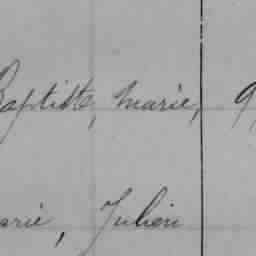 Baptiste, Marie, 9
arie, Julien